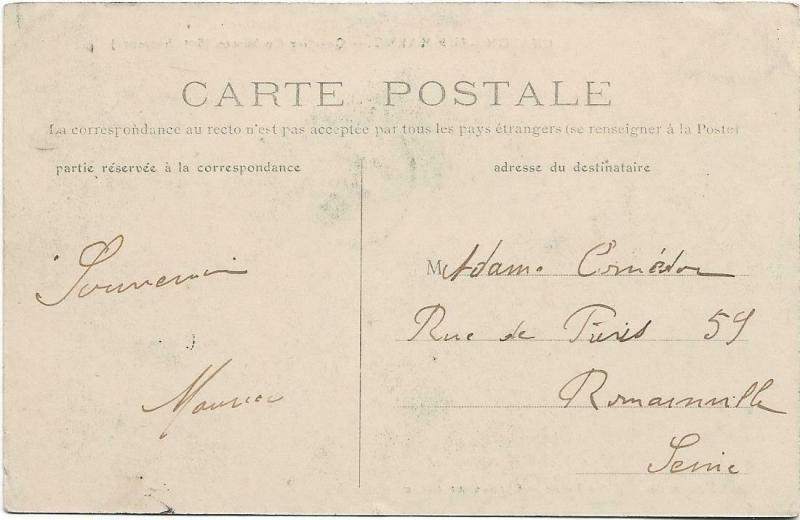 CARTE POSTALE
La correspondance au recto n'est pas acceptée par tous les pays étrangers (se renseigner à la Poste)
partie réservée à la correspondance
adresse du destinataire
Souvenir
Maurice
Madame
Rue de Paris 59
Romainville
Seine